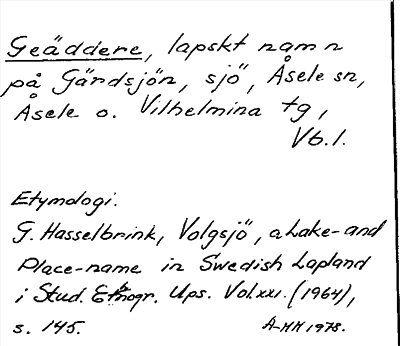 Geäddere, lapskt namn
på Gärdsjön, sjö, Åsele sn,
Åsele o. Vilhelmina tg,
Vb.l.
Etymologi.
G. Hasselbrink, Volgsjö, a Lake- and
Place-name in Swedish Lapland
i Stud. Ethnogr. Ups. Vol. XXI. (1964),
s. 145.
A-HH 1978.